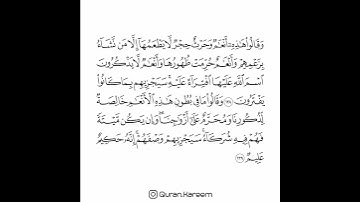 وَقَالُوا۟ هَٰذِهِۦٓ أَنْعَٰمٌ وَحَرْثٌ حِجْرٌ لَّا يَطْعَمُهَآ إِلَّا مَن نَّشَآءُ
بِزَعْمِهِمْ وَأَنْعَٰمٌ حُرِّمَتْ ظُهُورُهَا وَأَنْعَٰمٌ لَّا يَذْكُرُونَ
ٱسْمَ ٱللَّهِ عَلَيْهَا ٱفْتِرَآءً عَلَيْهِ سَيَجْزِيهِم بِمَا كَانُوا۟
يَفْتَرُونَ ۝ وَقَالُوا۟ مَا فِى بُطُونِ هَٰذِهِ ٱلْأَنْعَٰمِ خَالِصَةٌ
لِّذُكُورِنَا وَمُحَرَّمٌ عَلَىٰٓ أَزْوَٰجِنَا وَإِن يَكُن مَّيْتَةً
فَهُمْ فِيهِ شُرَكَآءُ سَيَجْزِيهِمْ وَصْفَهُمْ إِنَّهُۥ حَكِيمٌ
عَلِيمٌ ۝
Quran.Kareem